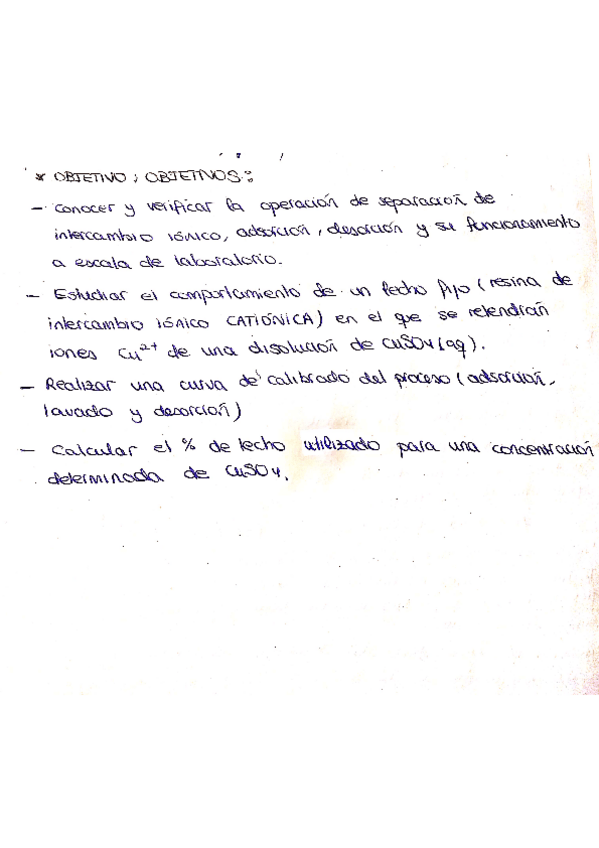 * OBJETIVO ; OBJETIVOS :
- Conocer y verificar la operación de separación de
intercambio iónico, adsorción, desorción y su funcionamiento
a escala de laboratorio.
- Estudiar el comportamiento de un lecho fijo (resina de
intercambio iónico CATIÓNICA) en el que se retendrán
iones Cu²⁺ de una disolución de CuSO4 (aq).
- Realizar una curva de calibrado del proceso (adsorción,
lavado y desorción)
- Calcular el % de lecho utilizado para una concentración
determinada de CuSO4.